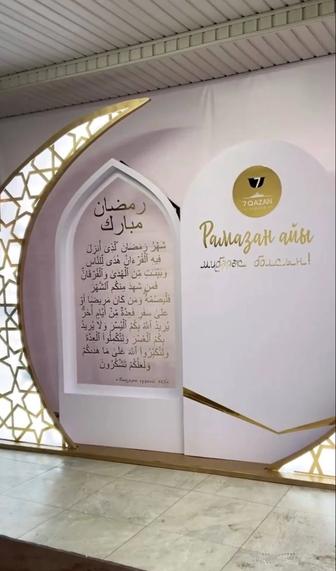 رمضان
مبارك
شَهْرُ رَمَضَانَ ٱلَّذِىٓ أُنزِلَ
فِيهِ ٱلْقُرْءَانُ هُدًى لِّلنَّاسِ
وَبَيِّنَٰتٍ مِّنَ ٱلْهُدَىٰ وَٱلْفُرْقَانِ
فَمَن شَهِدَ مِنكُمُ ٱلشَّهْرَ
فَلْيَصُمْهُ وَمَن كَانَ مَرِيضًا أَوْ
عَلَىٰ سَفَرٍ فَعِدَّةٌ مِّنْ أَيَّامٍ أُخَرَ
يُرِيدُ ٱللَّهُ بِكُمُ ٱلْيُسْرَ وَلَا يُرِيدُ
بِكُمُ ٱلْعُسْرَ وَلِتُكْمِلُوا۟ ٱلْعِدَّةَ
وَلِتُكَبِّرُوا۟ ٱللَّهَ عَلَىٰ مَا هَدَىٰكُمْ
وَلَعَلَّكُمْ تَشْكُرُونَ
7 QAZAN
Рамазан айы
мүбәрәк болсын!